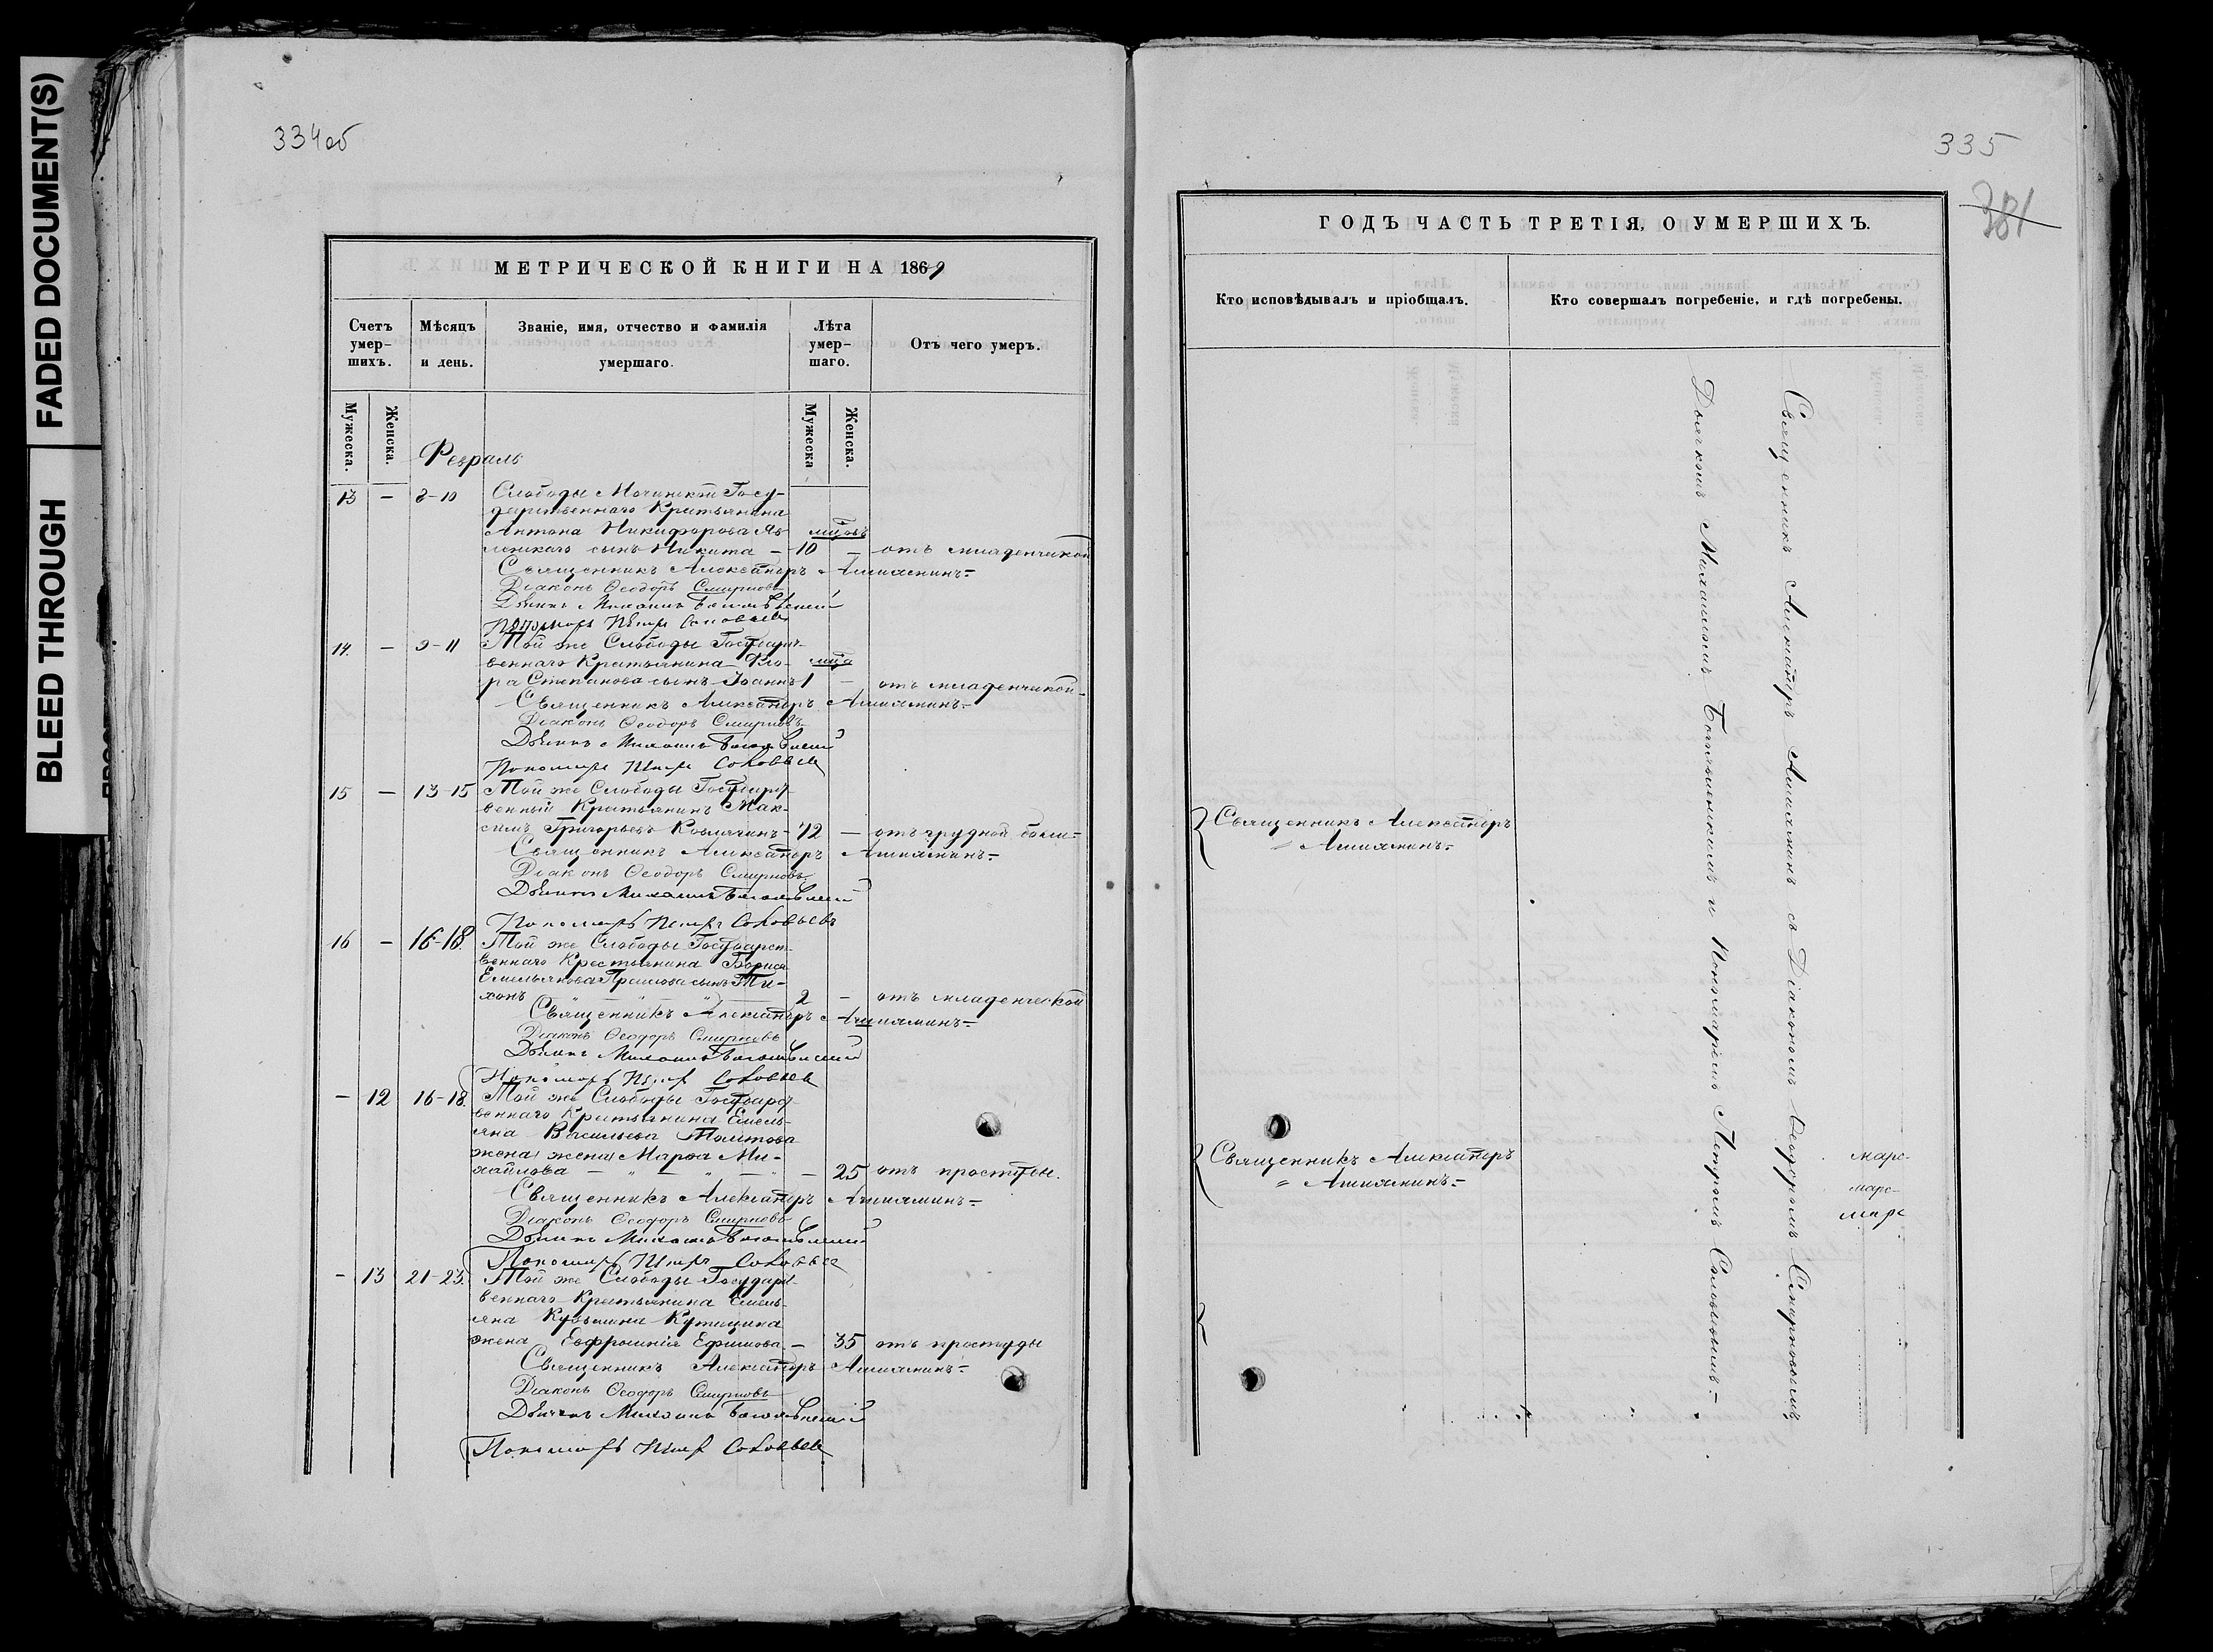 FADED DOCUMENT(S)
BLEED THROUGH
334 об
МЕТРИЧЕСКОЙ КНИГИ НА 1869
Счетъ умер-шихъ.
Мѣсяцъ и день.
Званіе, имя, отчество и фамилія умершаго.
Лѣта умер-шаго.
Отъ чего умеръ.
Мужеска.
Женска.
Мужеска
Женска.
Февраль
13 — 8-10 Слободы Мачинской Госу-
дарственнаго Крестьянина
Антона Никифорова
сынъ Никита — 10 — отъ младенческой
Священникъ Александръ
Діаконъ Ѳеодоръ Смирновъ
Дьячекъ Михаилъ Богоявленскій
Пономарь Петръ Соловьевъ
14. — 9-11 Той же Слободы Государст-
веннаго Крестьянина Фло-
ра Степанова сынъ Іоаннъ 1 — отъ младенческой
Священникъ Александръ
Діаконъ Ѳеодоръ Смирновъ
Дьячекъ Михаилъ Богоявленскій
Пономарь Петръ Соловьевъ
15 — 13-15 Той же Слободы Государст-
венный Крестьянинъ Мак-
симъ Григорьевъ 72 — отъ грудной боли
Священникъ Александръ
Діаконъ Ѳеодоръ Смирновъ
Дьячекъ Михаилъ Богоявленскій
Пономарь Петръ Соловьевъ
16 — 16-18. Той же Слободы Государст-
веннаго Крестьянина Бориса
Емельянова сынъ Ти-
хонъ 2 — отъ младенческой
Священникъ Александръ
Діаконъ Ѳеодоръ Смирновъ
Дьячекъ Михаилъ Богоявленскій
Пономарь Петръ Соловьевъ
— 12 16-18. Той же Слободы Государст-
веннаго Крестьянина Емель-
яна Васильева
жена жена Марѳа Ми-
хайлова — 25 отъ простуды.
Священникъ Александръ
Діаконъ Ѳеодоръ Смирновъ
Дьячекъ Михаилъ Богоявленскій
Пономарь Петръ Соловьевъ
— 13 21-23. Той же Слободы Государст-
веннаго Крестьянина Емель-
яна Кузьмина Купицина
жена Евфросинія Ефимова — 35 отъ простуды
Священникъ Александръ
Діаконъ Ѳеодоръ Смирновъ
Дьячекъ Михаилъ Богоявленскій
Пономарь Петръ Соловьевъ
335
381
ГОДЪ ЧАСТЬ ТРЕТІЯ, О УМЕРШИХЪ.
Кто исповѣдывалъ и пріобщалъ.
Кто совершалъ погребеніе, и гдѣ погребены.
Священникъ Александръ
Священникъ Александръ
Священникъ Александръ съ Діакономъ Ѳеодоромъ Смирновымъ
Дьячкомъ Михаиломъ Богоявленскимъ и Пономаремъ Петромъ Соловьевымъ.